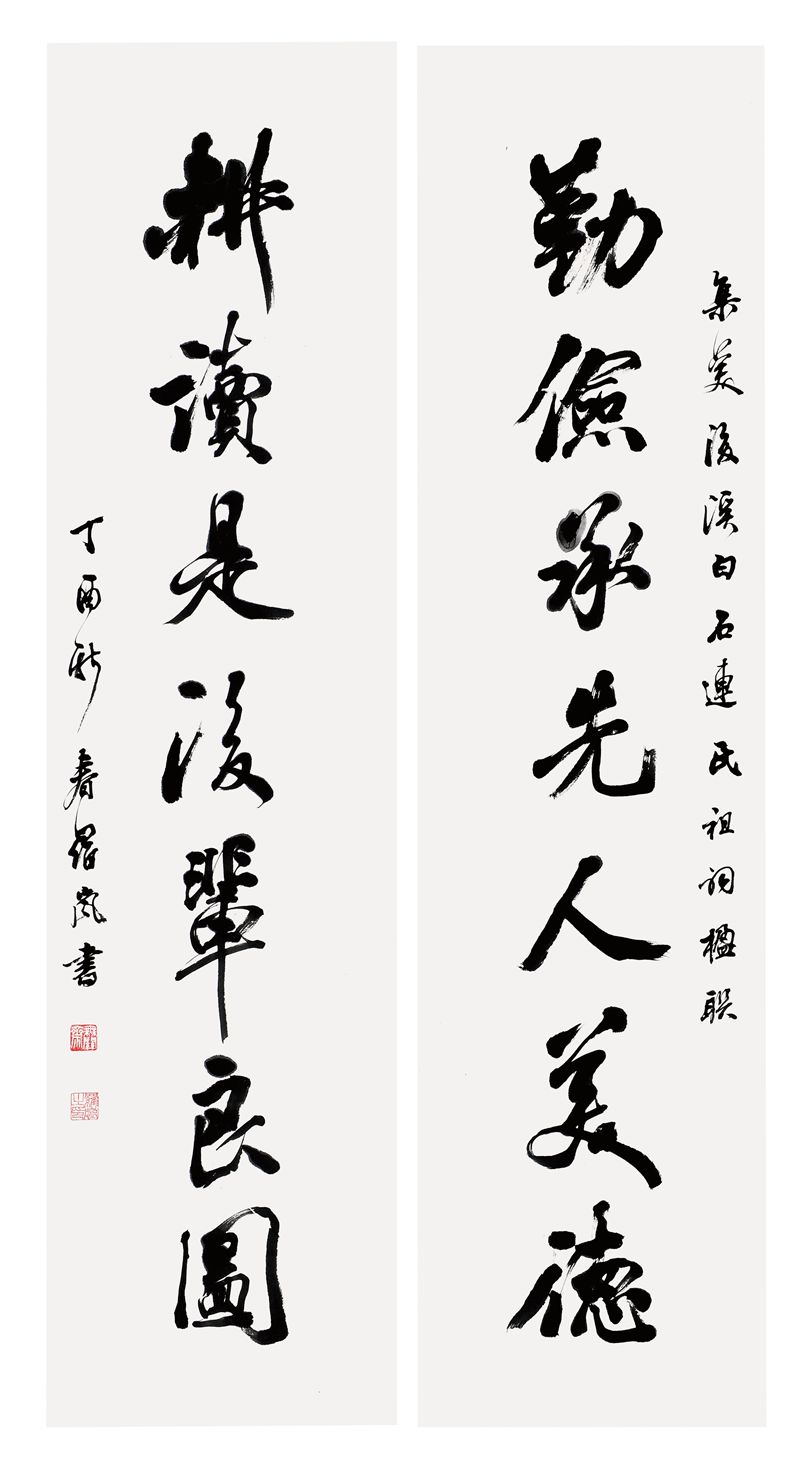 集美後溪白石連氏祖祠楹联
勤儉承先人美德
耕讀是後輩良圖
丁酉新春羅嵐書